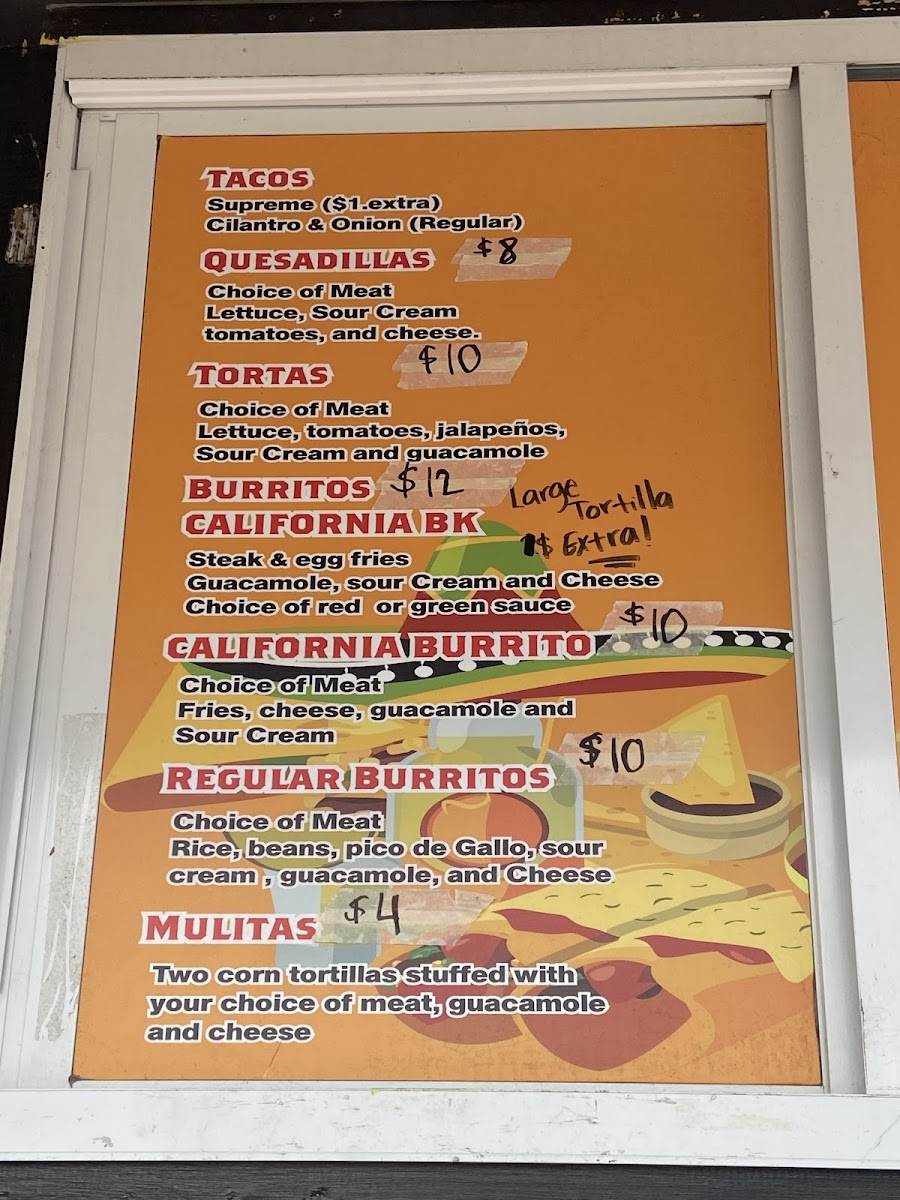 TACOS
Supreme ($1.extra)
Cilantro & Onion (Regular)
QUESADILLAS $8
Choice of Meat
Lettuce, Sour Cream
tomatoes, and cheese.
TORTAS $10
Choice of Meat
Lettuce, tomatoes, jalapeños,
Sour Cream and guacamole
BURRITOS $12
Large
Tortilla
1$ Extra!
CALIFORNIA BK
Steak & egg fries
Guacamole, sour Cream and Cheese
Choice of red or green sauce
CALIFORNIA BURRITO $10
Choice of Meat
Fries, cheese, guacamole and
Sour Cream
REGULAR BURRITOS $10
Choice of Meat
Rice, beans, pico de Gallo, sour
cream , guacamole, and Cheese
MULITAS $4
Two corn tortillas stuffed with
your choice of meat, guacamole
and cheese